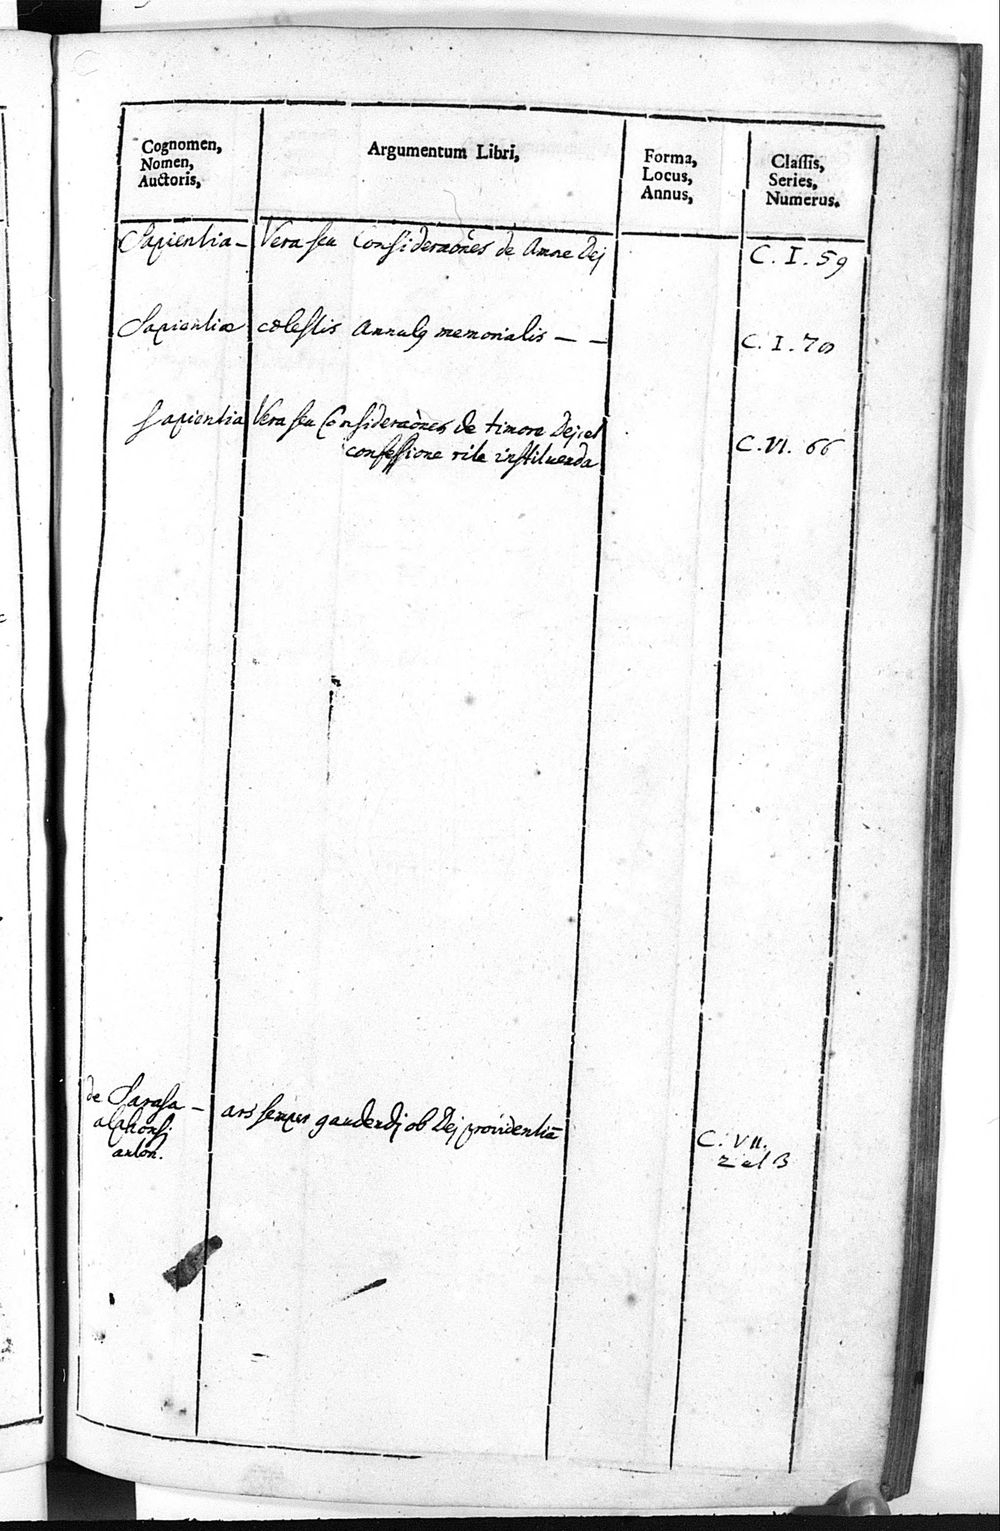 Cognomen,
Nomen,
Auctoris,
Argumentum Libri,
Forma,
Locus,
Annus,
Classis,
Series,
Numerus.
Sapientia – Vera seu Consideraões de Amore Dej C. I. 59
Sapientiæ cœlestis Annulq memorialis – – C. I. 70
Sapientia Vera seu Consideraões de timore Dej et
confessione rite instituenda C. VI. 66
de Sarasa – ars semper gaudendj ob Dej providentiā C. VII.
alphonsi 2 et 3
anton.